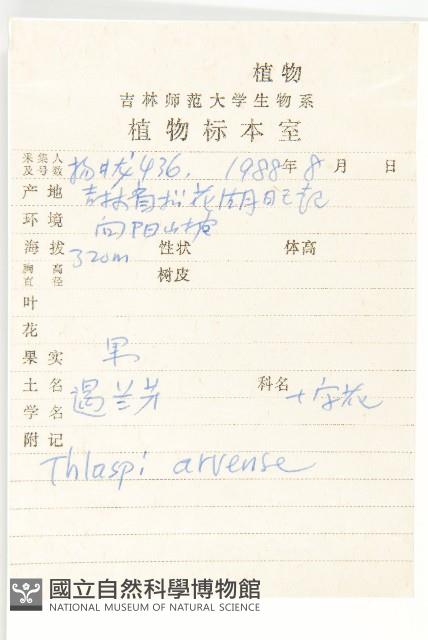 植物
吉林师范大学生物系
植物标本室
采集人及号数 杨 436. 1988年8月 日
产地 吉林省松花湖
环境 向阳山坡
海拔 320m 性状 体高
胸高直径 树皮
叶
花
果实 果
土名 遏兰芥 科名 十字花
学名
附记
Thlaspi arvense
國立自然科學博物館
NATIONAL MUSEUM OF NATURAL SCIENCE